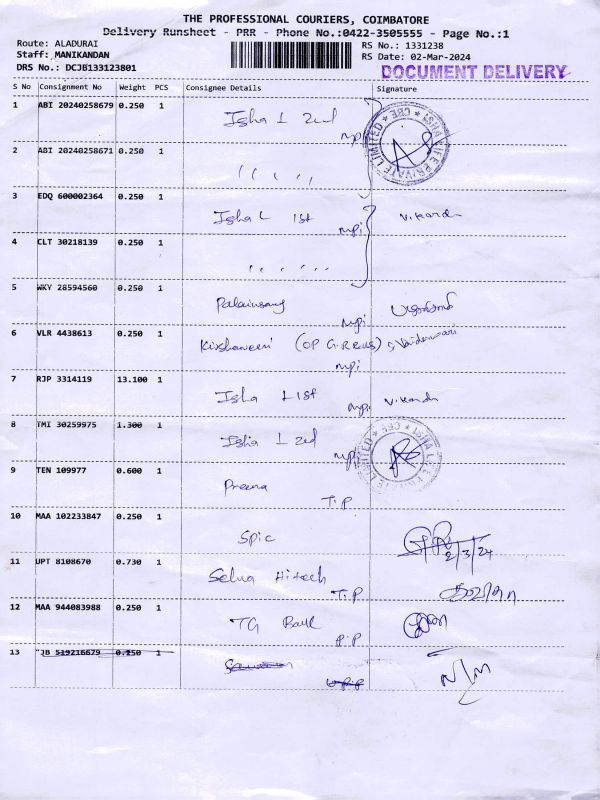 THE PROFESSIONAL COURIERS, COIMBATORE
Delivery Runsheet - PRR - Phone No.:0422-3505555 - Page No.:1
Route: ALADURAI
Staff: MANIKANDAN
DRS No.: DCJB133123801
RS No.: 1331238
RS Date: 02-Mar-2024
DOCUMENT DELIVERY
S No Consignment No Weight PCS Consignee Details Signature
1 ABI 20240258679 0.250 1 Isha L 2nd
ISHA LIFE PRIVATE LIMITED * CBE *
2 ABI 20240258671 0.250 1 " " "
3 EDQ 600002364 0.250 1 Isha L 1st
4 CLT 30218139 0.250 1 " " "
5 WKY 28594560 0.250 1
6 VLR 4438613 0.250 1
7 RJP 3314119 13.100 1 Isha L 1st
8 TMI 30259975 1.300 1 Isha L 2nd
ISHA LIFE PRIVATE LIMITED * CBE *
9 TEN 109977 0.600 1 T.P
10 MAA 102233847 0.250 1 Spic 2/3/24
11 UPT 8108670 0.730 1 Selva Hitech T.P
12 MAA 944083988 0.250 1 P.P
13 JB 519216679 0.250 1